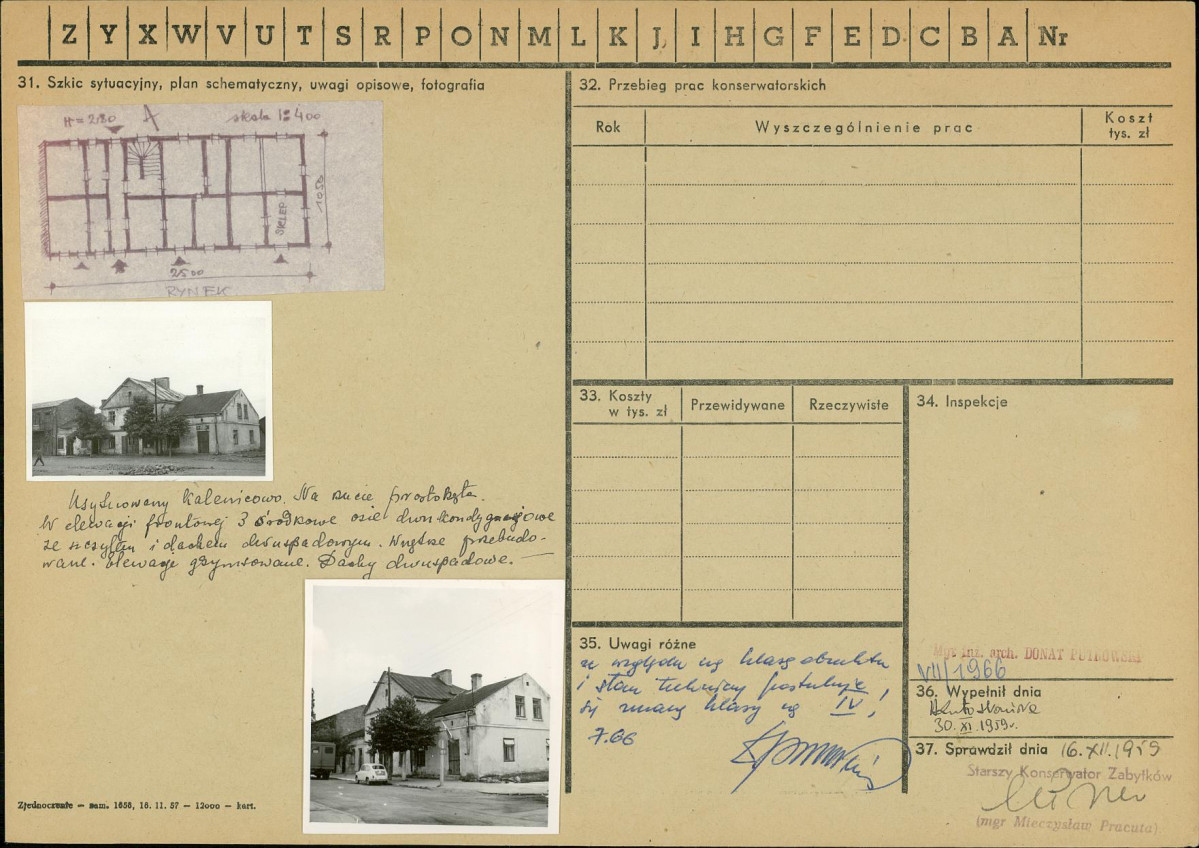 Z Y X W V U T S R P O N M L K J I H G F E D C B A Nr
31. Szkic sytuacyjny, plan schematyczny, uwagi opisowe, fotografia
H = 280 A skala 1:400
1050
SKLEP
2500
RYNEK
Usytuowany kalenicowo. Na rzucie prostokąta.
W elewacji frontowej 3 środkowe osie dwukondygnacjowe
ze szczytem i dachem dwuspadowym. Wnętrze przebudo-
wane. Elewacje gzymsowane. Dachy dwuspadowe. —
Zjednoczenie — zam. 1658, 18. 11. 57 — 12000 — kart.
32. Przebieg prac konserwatorskich
Rok Wyszczególnienie prac Koszt tys. zł
33. Koszty w tys. zł Przewidywane Rzeczywiste
34. Inspekcje
Mgr inż. arch. DONAT
VII/1966
35. Uwagi różne
ze względu na klasę obiektu
i stan techniczny postuluje
się zmianę klasy na IV!
7.66
36. Wypełnił dnia
30.XI.1959r.
37. Sprawdził dnia 16.XII.1959
Starszy Konserwator Zabytków
(mgr Mieczysław Pracuta)